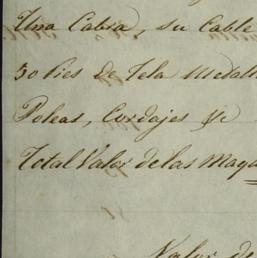 Una Cabra, su Cable
50 Pies de Tela Metali
Poleas, Cordajes &c
Total Valor de las Maqu
Valor de